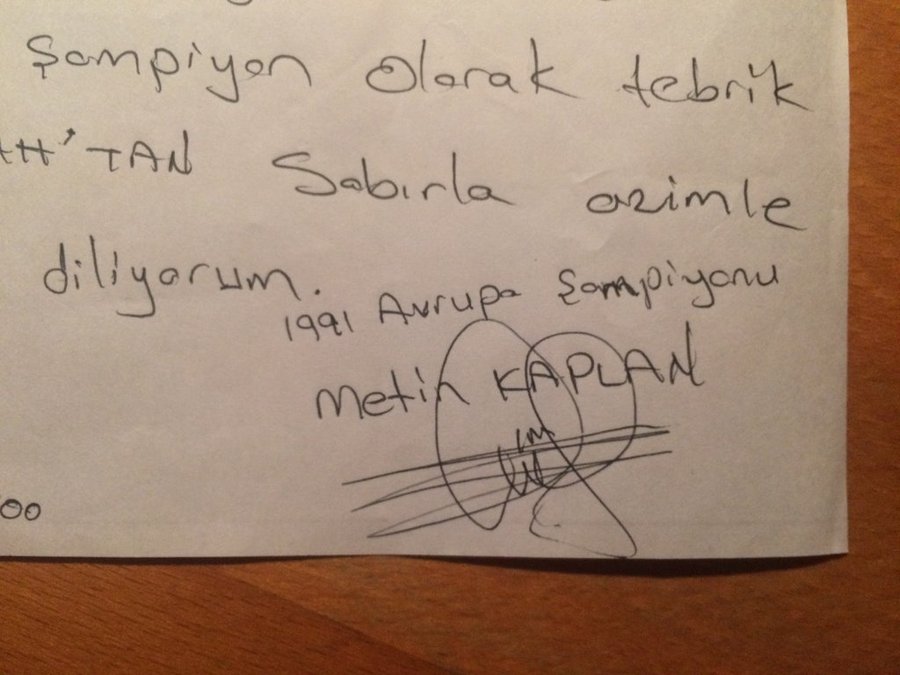 Şampiyon olarak tebrik
AH'TAN Sabırla azimle
diliyorum.
1991 Avrupa Şampiyonu
Metin KAPLAN
00